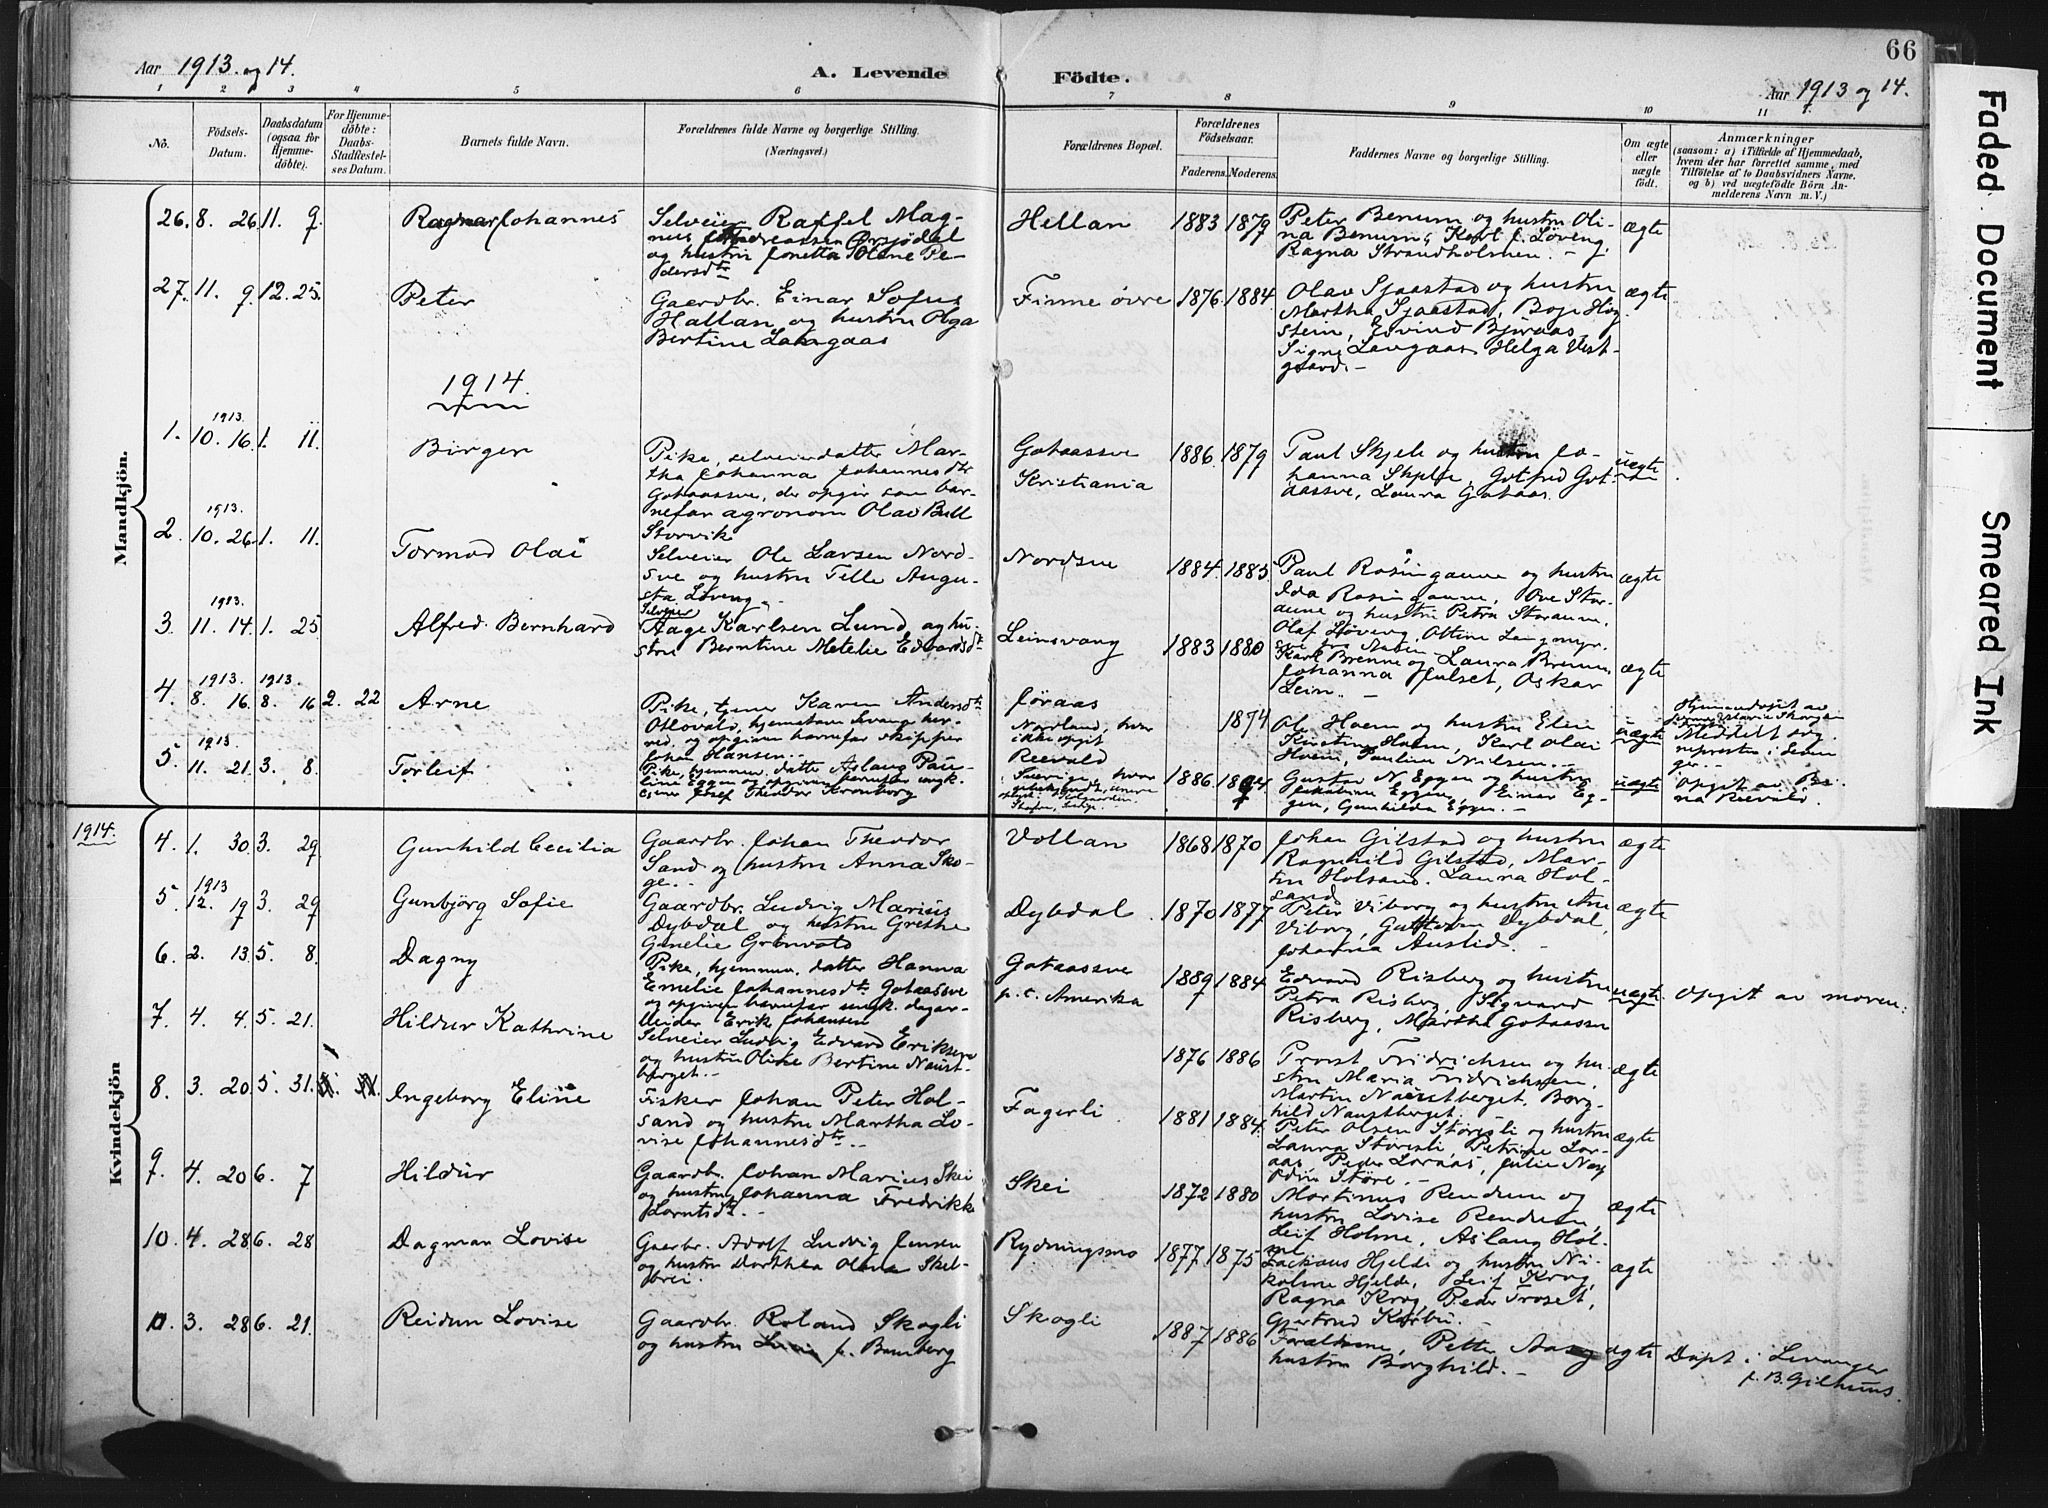 66
Aar 1913. og 14.
A. Levende Födte.
Aar 1913 og 14.
1 2 3 4 5 6 7 8 9 10 11
No.
Födsels-
Datum.
Daabsdatum
(ogsaa for
Hjemme-
döbte).
For Hjemme-
döbte:
Daabs-
Stadfæstel-
ses Datum.
Barnets fulde Navn.
Forældrenes fulde Navne og borgerlige Stilling.
(Næringsvei.)
Forældrenes Bopæl.
Forældrenes
Födselsaar.
Faderens. Moderens.
Faddernes Navne og borgerlige Stilling.
Om ægte
eller
uægte
födt.
Anmærkninger
(saasom: a) i Tilfælde af Hjemmedaab,
hvem der har forrettet samme, med
Tilföielse af to Daabsvidners Navne.
og b) ved uægtefödte Börn An-
melderens Navn m. V.)
Mandkjön.
26. 8. 26. 11. 9. Ragnar Johannes
Selveier Raffel Mag-
nus Andreassen Örsjödal
og hustru Jonetta Oline Pe-
dersdtr
Hellan 1883 1879
Peter Benum og hustru Oli-
na Benum, Karl f. Löveng,
Ragna Strandholmen. -
ægte
27. 11. 9. 12. 25. Peter
Gaardbr. Einar Sofus
Hallan og hustru Olga
Bertine Langaas
Finne övre 1876. 1884.
Olav Sjaastad og hustru
Martha Sjaastad, Boje Hög-
stein, Eivind Bjeraas,
Signe Langaas, Helga Vest-
gaard. -
ægte
1914.
1. 1913. 10. 16. 1. 11. Birger
Pike, selveierdatter Mar-
tha Johanna Johannesdtr
Gotaassve, der opgir som bar-
nefar agronom Olav Bull
Storvik
Gotaassve
Kristiania
1886. 1879
Paul Skjele og hustru Jo-
hanna Skjele, Gotfred Got-
aassve, Laura Gotaas.
uægte
2. 1913. 10. 26. 1. 11. Tormod Olai
Selveier Ole Larsen Nord-
sve og hustru Tille Augu-
sta Löveng.
Nordsve 1884. 1883
Paul Rosingaune og hustru
Ida Rosingaune, Ove Stor-
aune og hustru Petra Storaune,
Olaf Löveng, Ottine Langmyr.
ægte
3. 1913. 11. 14. 1. 25. Alfred Bernhard
Selveier
Aage Karlsen Lund og hu-
stru Berntine Metelie Edvardsdtr
Leinsvang 1883 1880
Karl Brenne og Laura Brenne,
Johanna Hulset, Oskar
Lein. -
ægte
4. 1913. 8. 16. 1913. 8. 16 2. 22 Arne
Pike, tjener Karen Andersdtr
Johan Hansen.
Joraas
Nordland, hvor
ikke opgit
1874
Ole Hoem og hustru Elen
Kirstine Hoem, Karl Olai
Hoem, Pauline Nilsen. -
uægte
5. 1913. 11. 21. 3. 8. Torleif
Pike, hjemmev. datter Aslaug Pau-
line Eggen og opgiven barnefar ungk.
Josef Theodor Kronborg
Reevald
Sverige, hvor
1886. 1894
Gustav N. Eggen og hustru
Jakobine Eggen, Einar Eg-
gen, Gunhilda Eggen. -
uægte
opgit av
na Reevald.
1914.
Kvindekjön
4. 1. 30. 3. 29 Gunhild Cecilia
Gaardbr. Johan Theodor
Sand og hustru Anna Sko-
ge. -
Vollan 1868 1870
Johan Gilstad og hustru
Ragnhild Gilstad, Mar-
tin Holsand. Laura Hol-
sand
ægte
5. 1913 12. 19 3. 29 Gunbjörg Sofie
Gaardbr. Ludvig Marius
Dybdal og hustru Grethe
Gunelie Grönvold
Dybdal. 1870 1877
Peter Viborg og hustru Ane
Viborg, Guttorm Dybdal,
Johanna Austid. -
ægte
6. 2. 13. 5. 8. Dagny
Pike, hjemmev. datter Hanna
Emelie Johannesdtr Gotaassve
og opgiven barnefar ungk. dagar-
beider Erik Johansen
Gotaassve
p. t. Amerika
1889 1884
Edvard Risberg og hustru
Petra Risberg, Sigvard
Risberg, Martha Gotaassve
uægte
opgit av moren.
7. 4. 4. 5. 21. Hildur Kathrine
Selveier Ludvig Edvard Eriksen
og hustru Oline Bertine Naust-
berget. -
1876 1886
Provst Fridrichsen og hu-
stru Maria Fridrichsen,
Martin Naustberget, Borg-
hild Naustberget.
ægte
8. 3. 20. 5. 31. Ingeborg Eline
Fisker Johan Peter Hol-
sand og hustru Martha Lo-
vise Johannesdtr. -
Fagerli 1881 1884.
Peter Olsen Störesli og hustru
Laura Störesli, Petrine Lor-
aas, Peder Loraas, Julie Næs
Odin Störe. -
ægte
9. 4. 20 6. 7 Hildur
Gaardbr. Johan Marius Skei
og hustru Johanna Fredrikke
Lorntsdtr. -
Skei 1872 1880
Martinus Rendum og
hustru Lovise Rendum,
Leif Holme, Aslaug Hol-
me
ægte
10. 4. 28 6. 28 Dagmar Lovise
Gaardbr. Adolf Ludvig Jensen
og hustru Dorthea Oline Skel-
brei.
Rydningsmo 1877. 1875
Zackaus Hjelde og hustru Ni-
koline Hjelde, Leif Krog,
Ragna Krog, Peder Troset,
Gjertrud Karbu. -
ægte
3. 28 6. 21. Reidun Lovise
Gaardbr. Roland Skogli
og hustru f. Bomberg
Skogli 1887 1886
Forældrene, Petter Aas og
hustru Borghild. -
ægte
Döpt i Levanger
f. B. Gilhuus.
Faded Document
Smeared Ink